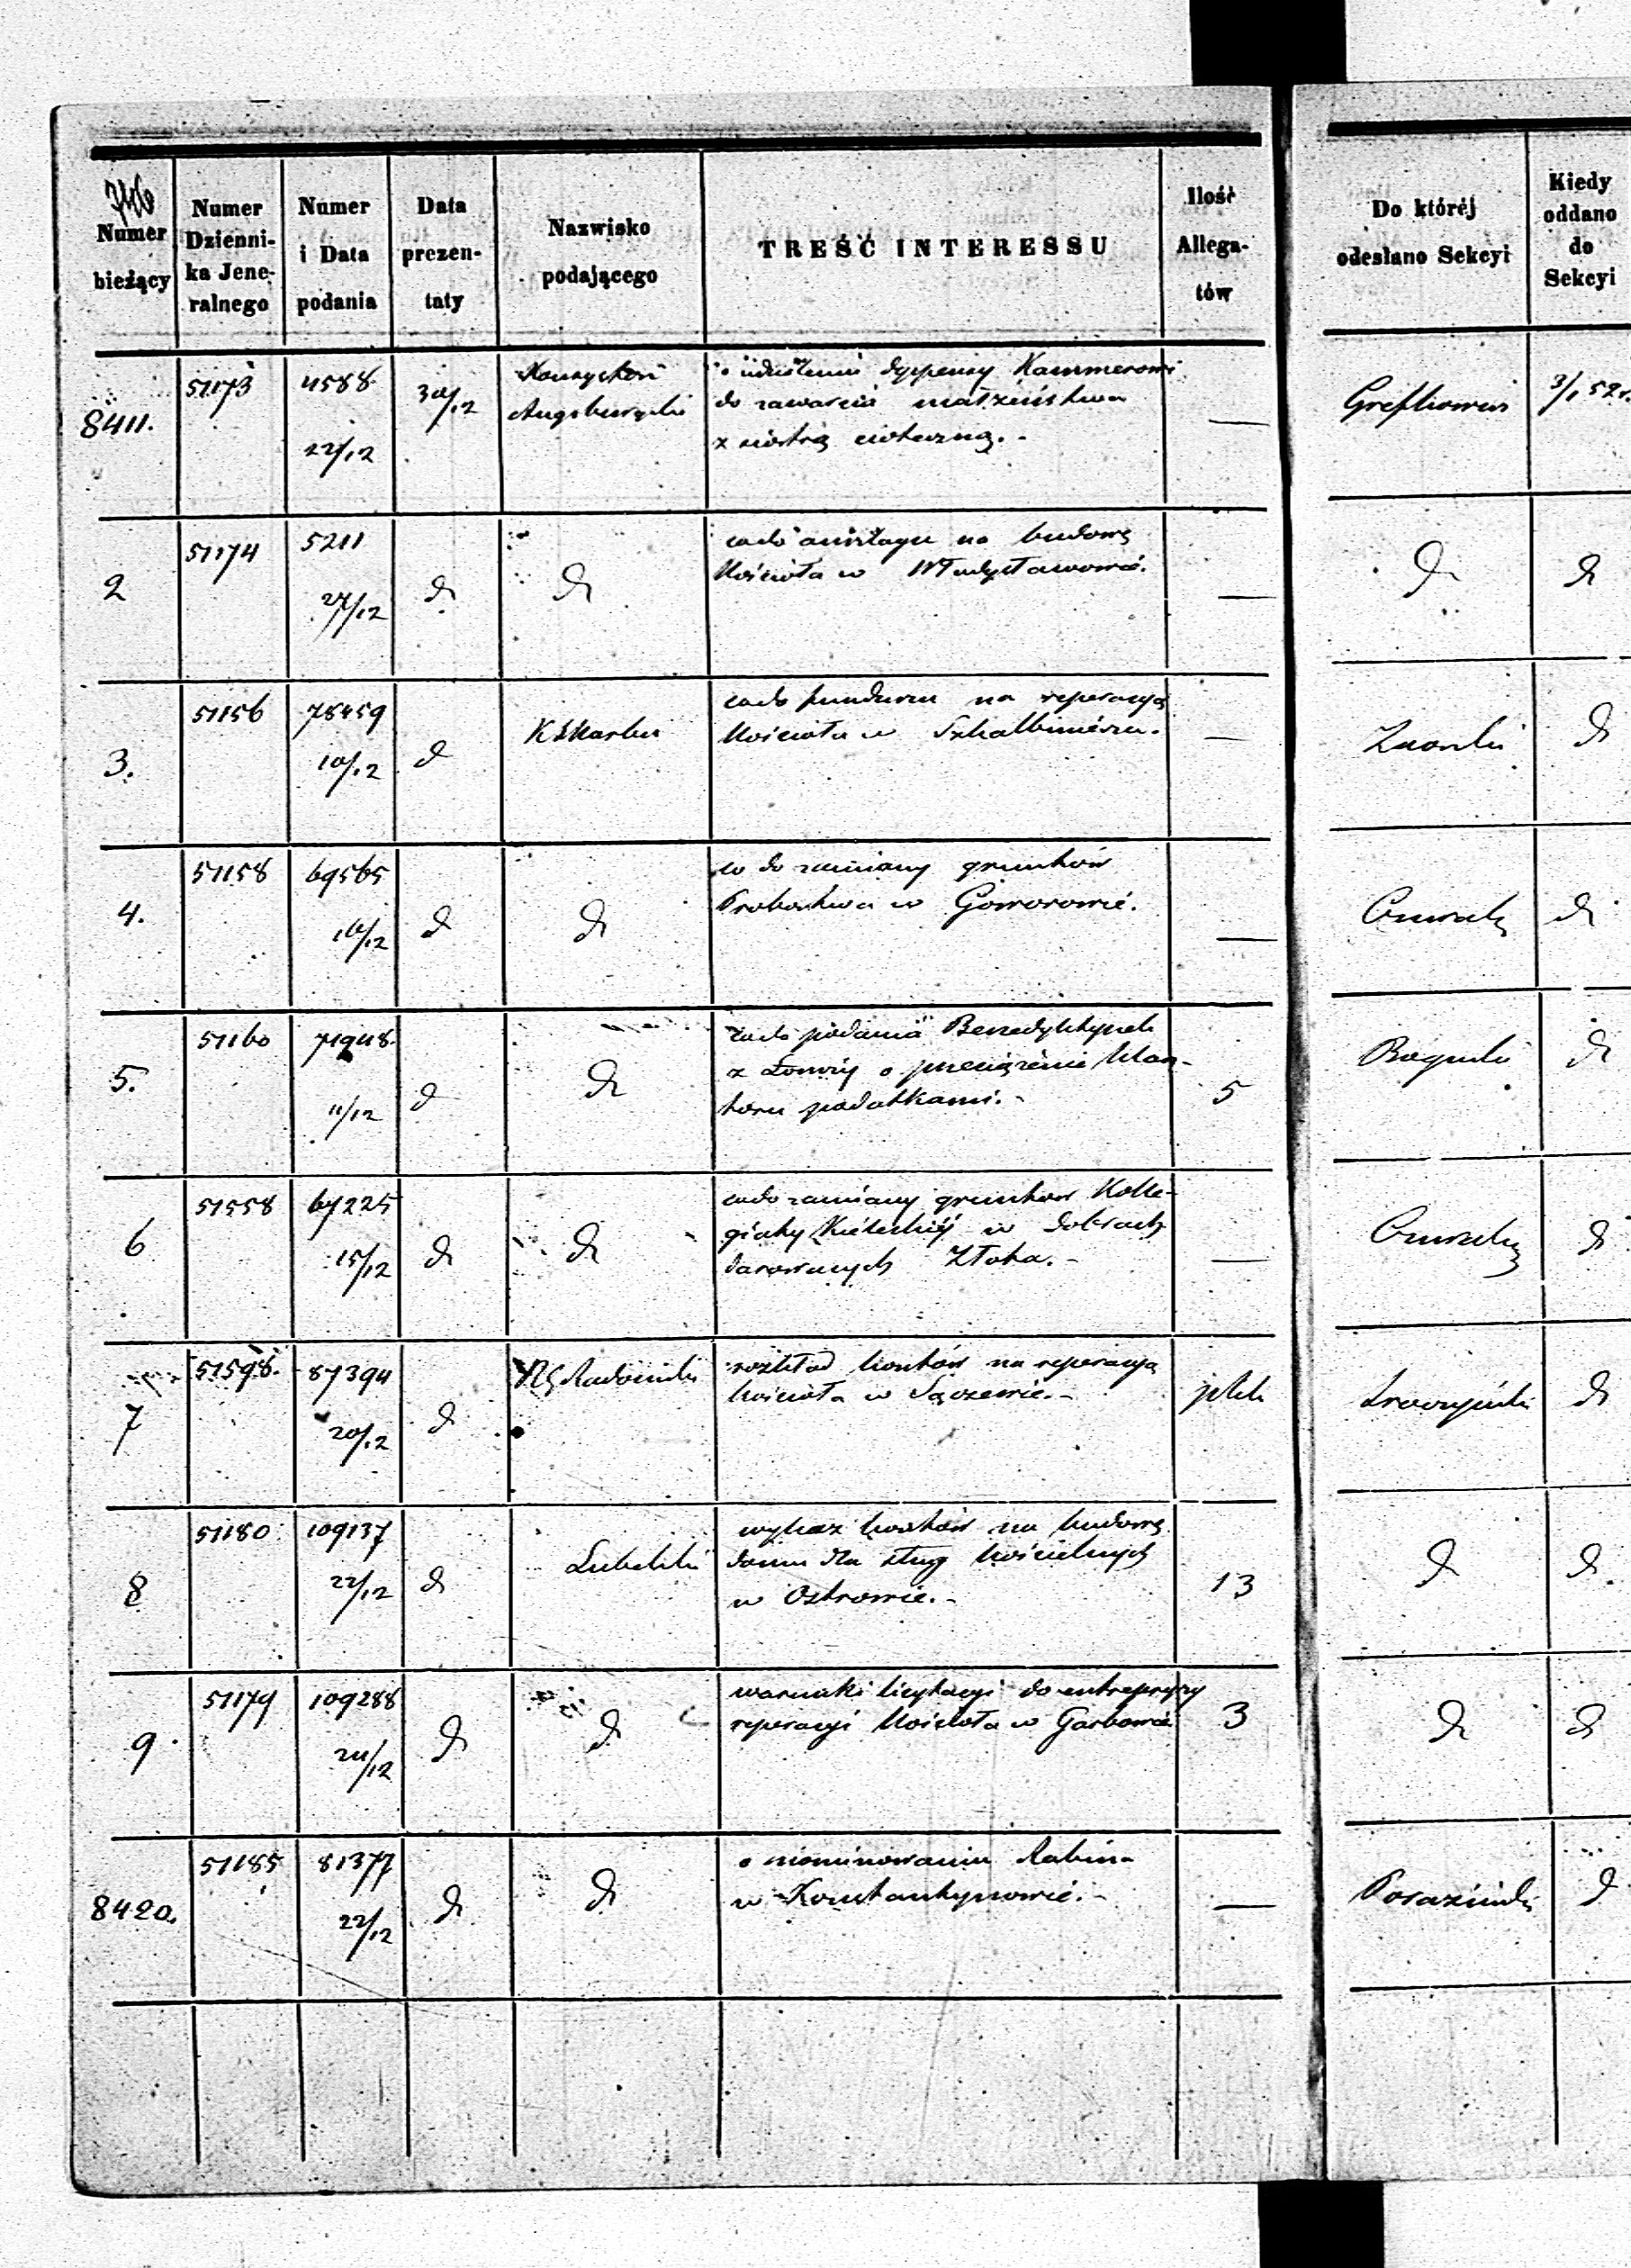 746
Numer bieżący
Numer Dzienni-ka Jene-ralnego
Numer i Data podania
Data prezen-taty
Nazwisko podającego
TREŚĆ INTERESSU
Ilość Allega-tów
Do któréj odesłano Sekcyi
Kiedy oddano do Sekcyi
8411.
51173
4588
22/12
30/12
Konsystorz
Augsburgski
o udzielenie dyspensy Kammerowi
do zawarcia małżeństwa
z siostrą cioteczną.-
—
3/1 52r.
2
51174
5211
27/12
d
d
co do anszlagu na budowę
Kościoła w Władysławowie.
—
d
d
3.
51156
78459
10/12
d
K S Karbu
co do funduszu na reperacyą
Kościoła w Szkalbmierzu.
—
d
4.
51158
69565
16/12
d
d
co do zamiany gruntów
Probostwa w Goworowie.
—
d
5.
51160
71948
11/12
d
d
co do podania Benedyktynek
z Łomży o przeciążenie klasz-
toru podatkami.-
5
d
6
51558
67225
15/12
d
d
co do zamiany gruntów Kolle-
giaty Kieleckiéj w dobrach
darowanych Złota.-
—
d
7
51598.
87394
20/12
d
RG Radomski
rozkład kosztów na reperacyą
kościoła w Sączewie.-
plik
d
8
51180
109137
22/12
d
Lubelski
wykaz kosztów na budowę
domu dla sług kościelnych
w Ostrowie.-
13
d
d
9.
51179
109288
24/12
d
d
warunki licytacyi do entrepryzy
reperacyi kościoła w Garbowie
3
d
d
8420.
51185
81377
22/12
d
d
o nominowaniu Rabina
w Konstantynowie.-
—
d